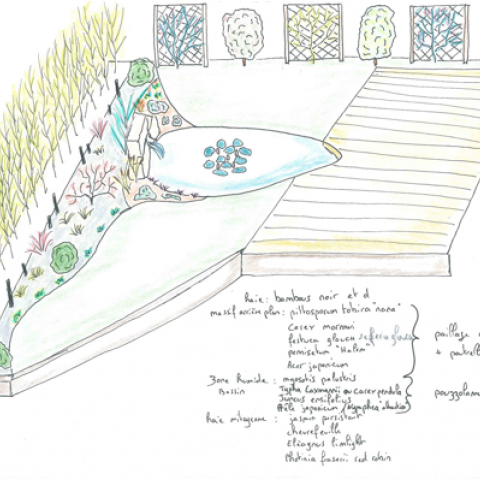 haie : bambous noir et d
massif arrière plan : pittosporum tobira "nana"
Carex morrowi
festuca glauca
pennisetum "Hameln"
Acer japonicum
paillage
+ poutrelle
Zone humide : myosotis palustris
Bassin Typha laxmannii ou carex pendula
Juncus ensifolius
pouzzolane
japonicum (Nymphea
haie mitoyenne : jasmin persistant
chevrefeuille
Eleagnus limlight
Photinia fraserii red robin